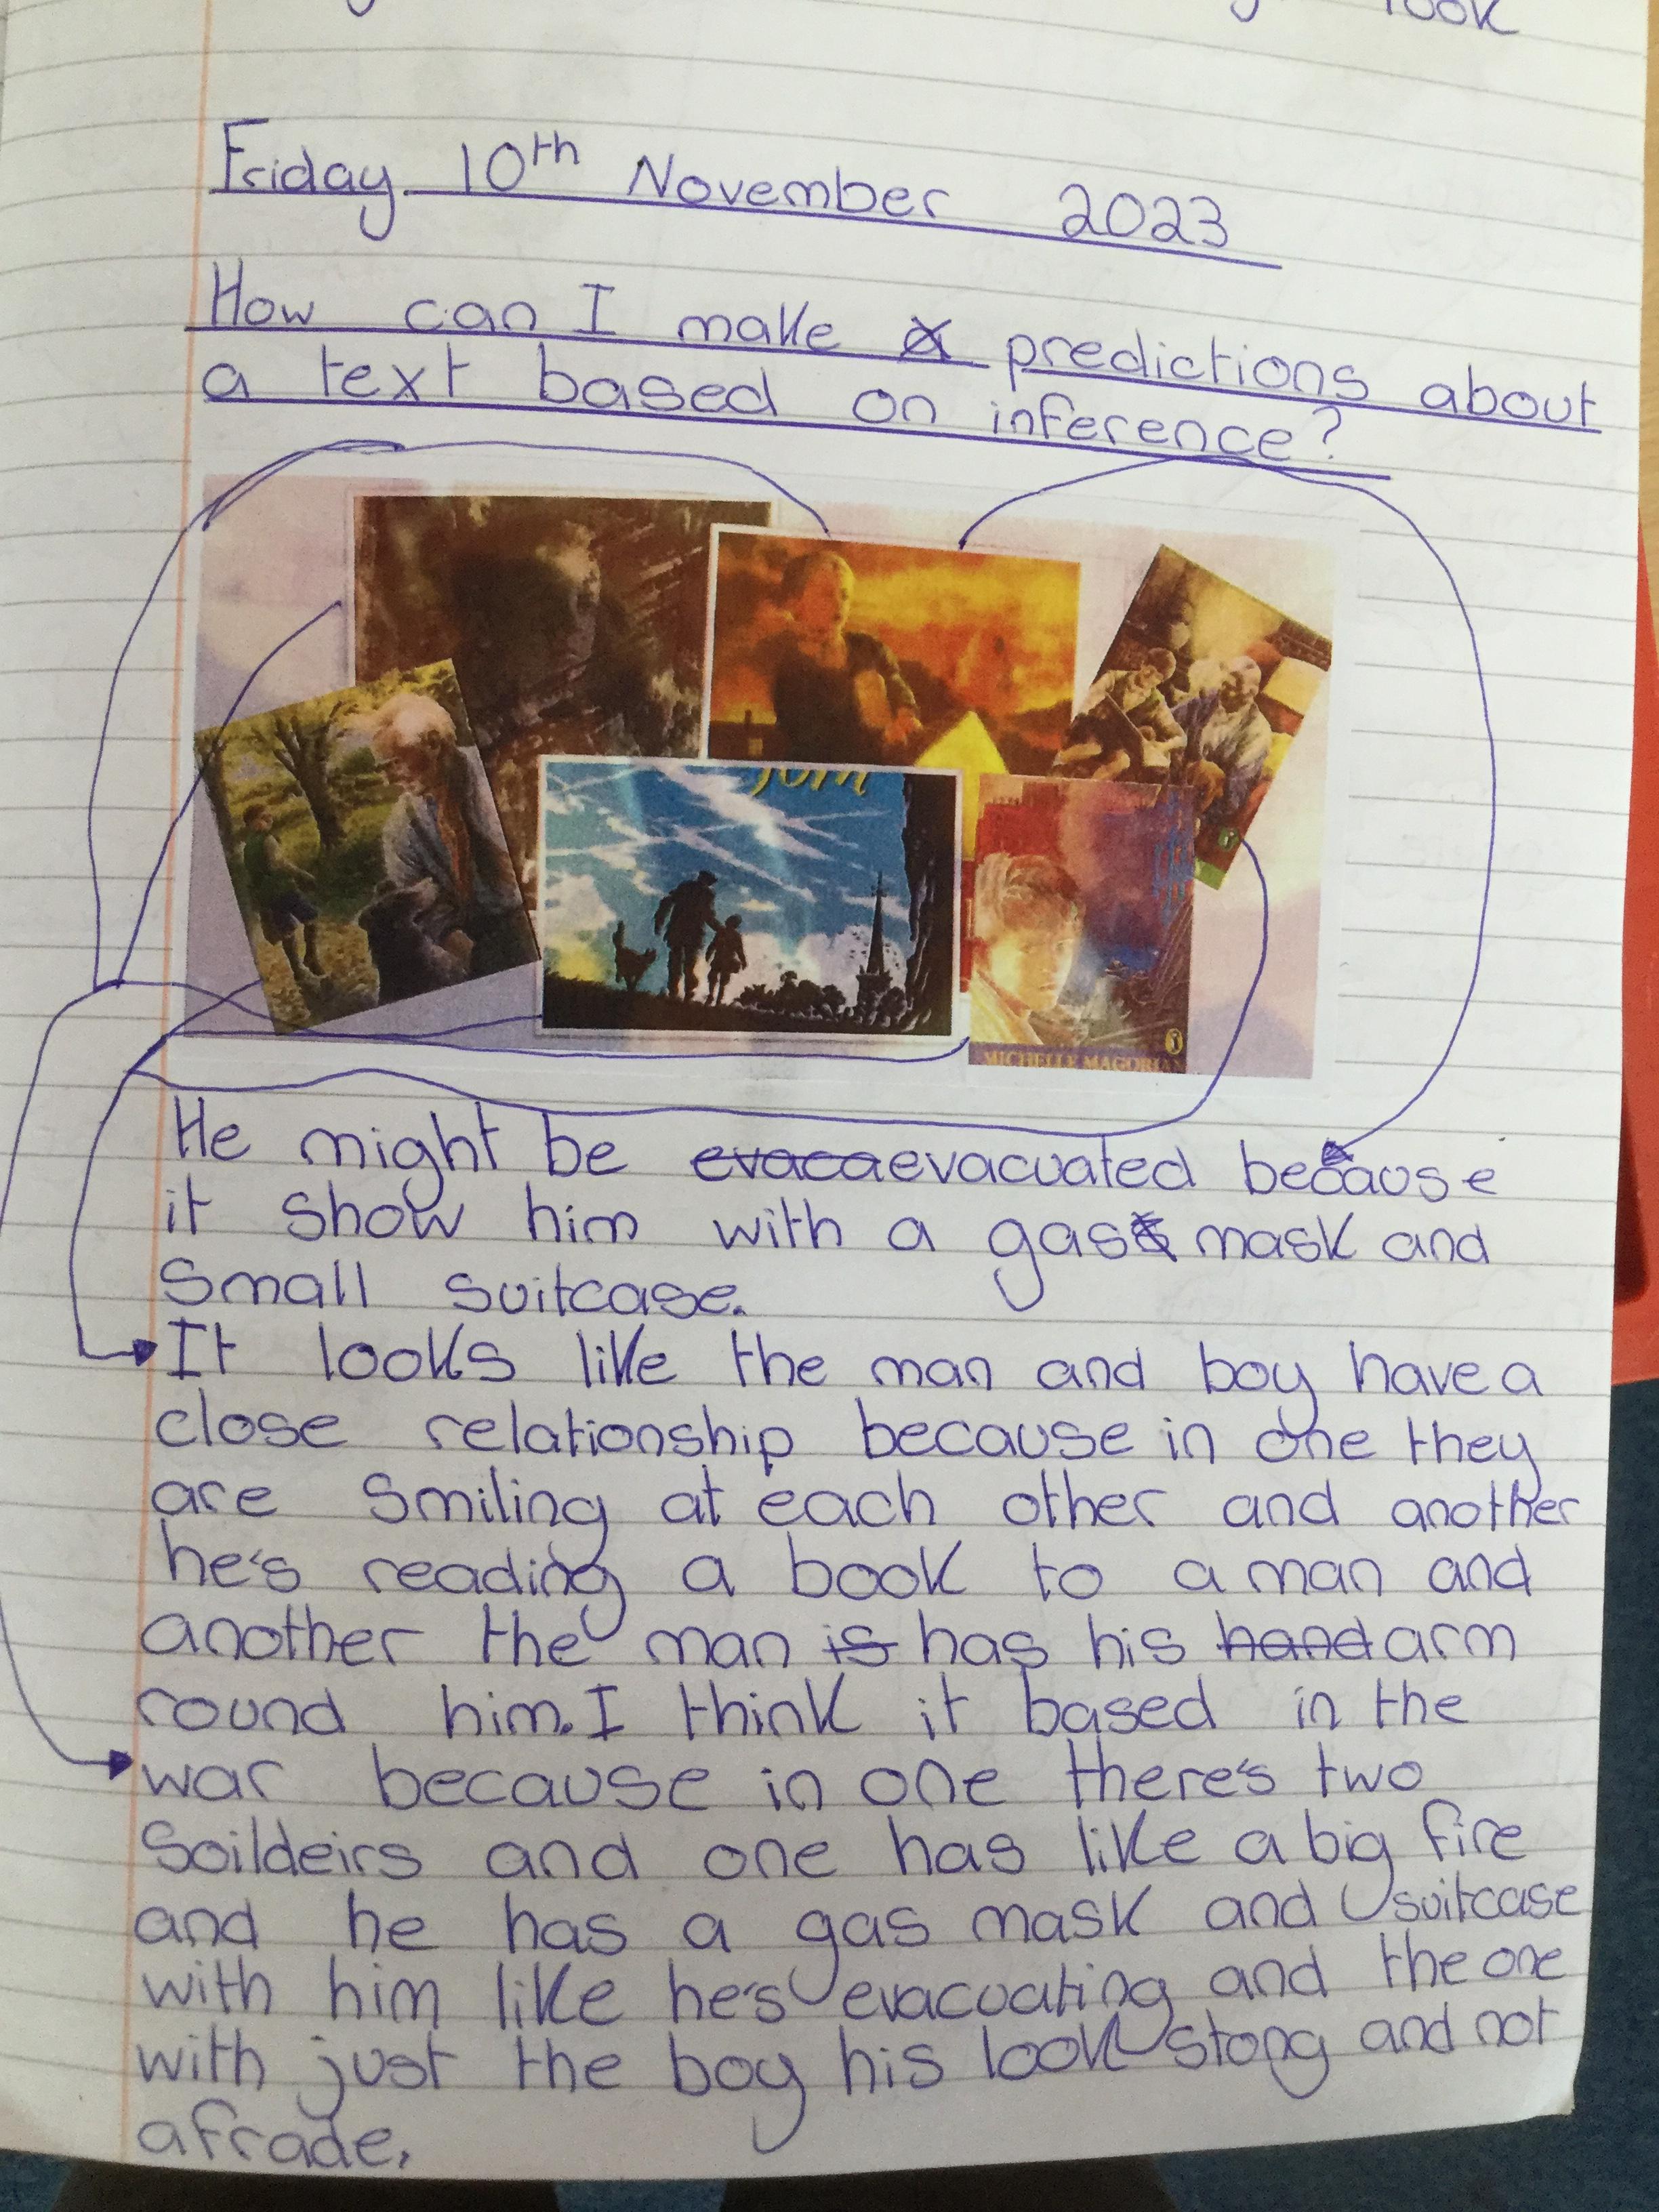 look
Friday 10th November 2023
How can I make a predictions about
a text based on inference?
Tom
MICHELLE MAGORIAN
He might be evacaevacuated because
it show him with a gas mask and
small suitcase.
It looks like the man and boy have a
close relationship because in one they
are smiling at each other and another
he's reading a book to a man and
another the man is has his hand arm
round him. I think it based in the
war because in one there's two
Soildeirs and one has like a big fire
and he has a gas mask and suitcase
with him like he's evacuating and the one
with just the boy his look stong and not
afrade.